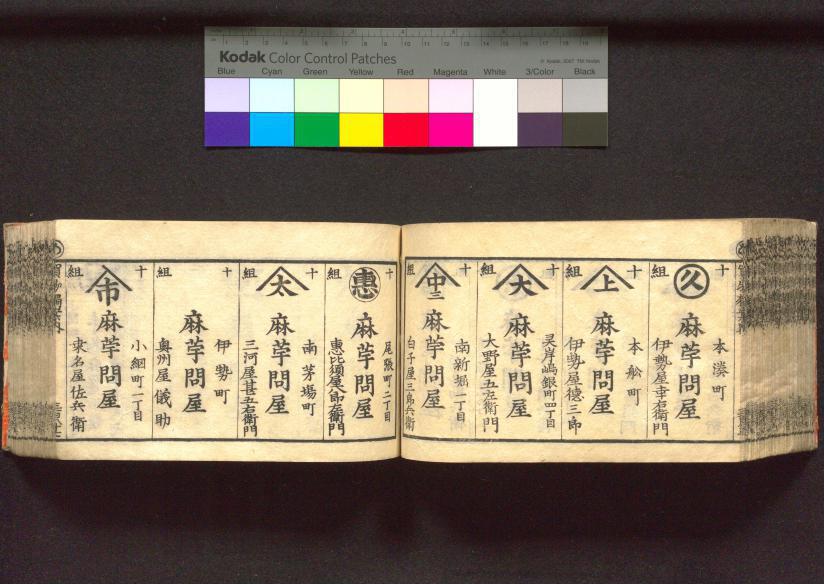 Kodak Color Control Patches
© Kodak, 2007 TM: Kodak
Blue Cyan Green Yellow Red Magenta White 3/Color Black
十組
久
本湊町
麻苧問屋
伊勢屋幸右衛門
十組
上
本舩町
麻苧問屋
伊勢屋德三郎
十組
大
㚑岸嶋銀町四丁目
麻苧問屋
大野屋五左衛門
十組
中三
南新堀一丁目
麻苧問屋
白子屋三郎兵衛
十組
惠
尾張町二丁目
麻苧問屋
惠比須屋八郎左衛門
十組
太
南茅場町
麻苧問屋
三河屋甚五右衛門
十組
伊勢町
麻苧問屋
奥州屋儀助
十組
市
小網町一丁目
麻苧問屋
東名屋佐兵衛